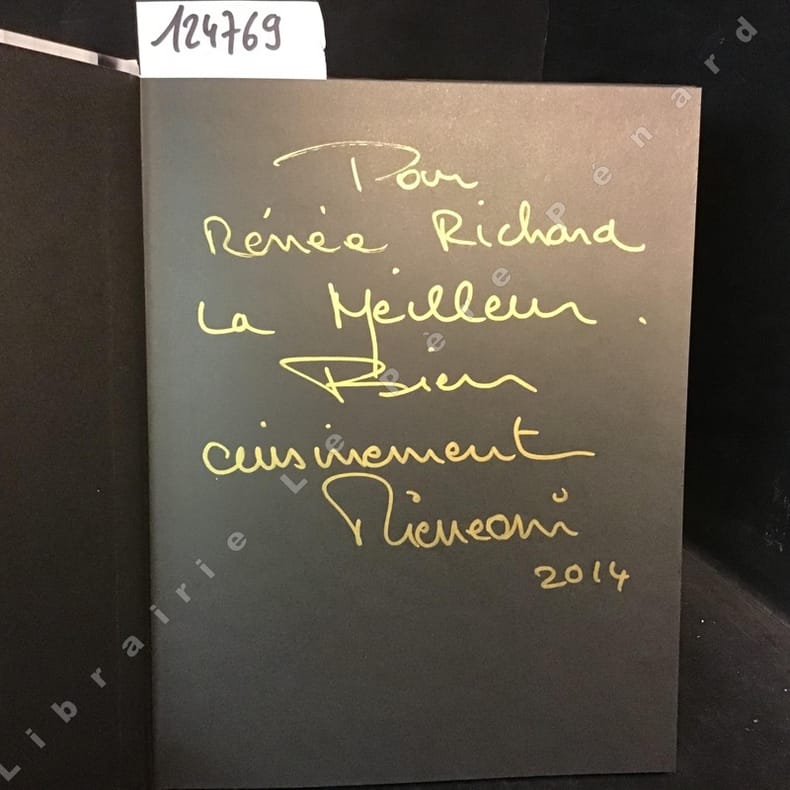 124769
Pour
Rénée Richard
La Meilleur.
Bien
cuisinement
2014
Librairie Le Père Pénard